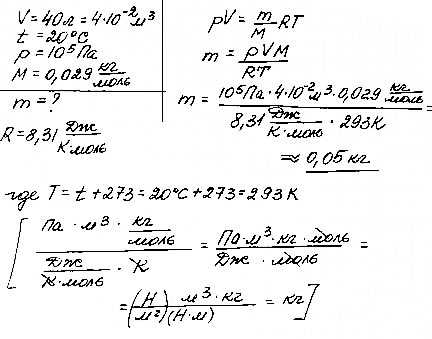 V = 40 л = 4·10⁻² м³
t = 20°C
p = 10⁵ Па
M = 0,029 кг/моль
m = ?
R = 8,31 Дж/К·моль
pV = m/M RT
m = pVM/RT
m = 10⁵ Па · 4·10⁻² м³ · 0,029 кг/моль / 8,31 Дж/К·моль · 293 К =
≈ 0,05 кг
где T = t + 273 = 20°C + 273 = 293 К
[ Па · м³ · кг/моль / Дж/К·моль · К = Па·м³·кг·моль / Дж · моль =
= (Н/м²) м³ · кг / (Н·м) = кг ]